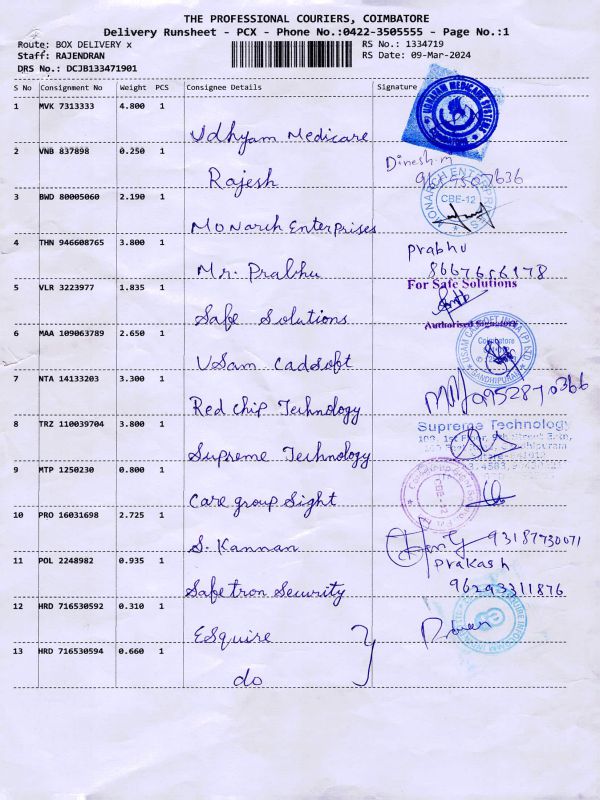 THE PROFESSIONAL COURIERS, COIMBATORE
Delivery Runsheet - PCX - Phone No.:0422-3505555 - Page No.:1
Route: BOX DELIVERY x
RS No.: 1334719
Staff: RAJENDRAN
RS Date: 09-Mar-2024
DRS No.: DCJB133471901
S No Consignment No Weight PCS Consignee Details Signature
1 MVK 7313333 4.800 1 Udhyam Medicare
2 VNB 837898 0.250 1 Rajesh Dinesh.m
3 BWD 80005060 2.190 1 Monarch Enterprises MONARCH ENTERPRISES CBE-12
4 THN 946608765 3.800 1 Mr. Prabhu Prabhu
5 VLR 3223977 1.835 1 Safe Solutions For Safe Solutions
Authorised Signatory
6 MAA 109063789 2.650 1 USam Cadsoft
7 NTA 14133203 3.300 1 Red chip Technology
8 TRZ 110039704 3.800 1 Supreme Technology Supreme Technology
9 MTP 1250230 0.800 1 Care group Sight CBE-12
10 PRO 16031698 2.725 1 S. Kannan 93187730071
11 POL 2248982 0.935 1 Safetron Security Prakash
96293311876
12 HRD 716530592 0.310 1 Esquire
13 HRD 716530594 0.660 1 do